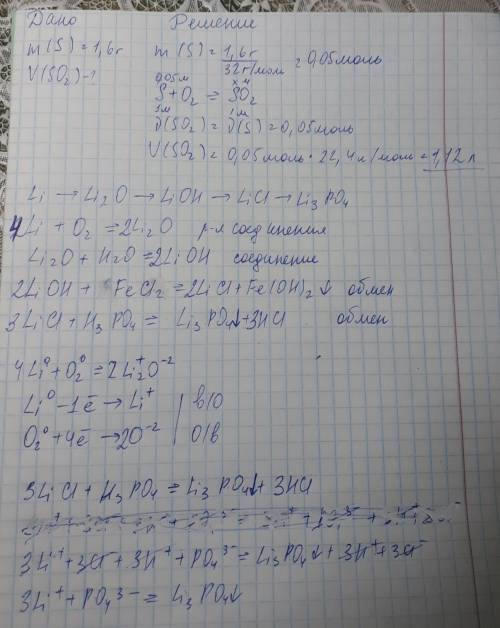 Дано Решение
m(S)=1,6г m(S)=1,6г/32г/мом=0,05моль
V(SO₂)-?
0,05м хм
S+O₂=SO₂
1м 1м
ν(SO₂)=ν(S)=0,05моль
V(SO₂)=0,05моль·22,4л/мом=1,12л
Li→Li₂O→LiOH→LiCl→Li₃PO₄
4Li+O₂=2Li₂O р-я соединения
Li₂O+H₂O=2LiOH соединение
2LiOH+FeCl₂=2LiCl+Fe(OH)₂↓ обмен
3LiCl+H₃PO₄=Li₃PO₄↓+3HCl обмен
4Li⁰+O₂⁰=2Li₂⁺O⁻²
Li⁰-1e̅→Li⁺ | в/О
O₂⁰+4e̅→2O⁻² | О/в
3LiCl+H₃PO₄=Li₃PO₄↓+3HCl
3Li⁺+3Cl⁻+3H⁺+PO₄³⁻=Li₃PO₄↓+3H⁺+3Cl⁻
3Li⁺+PO₄³⁻=Li₃PO₄↓